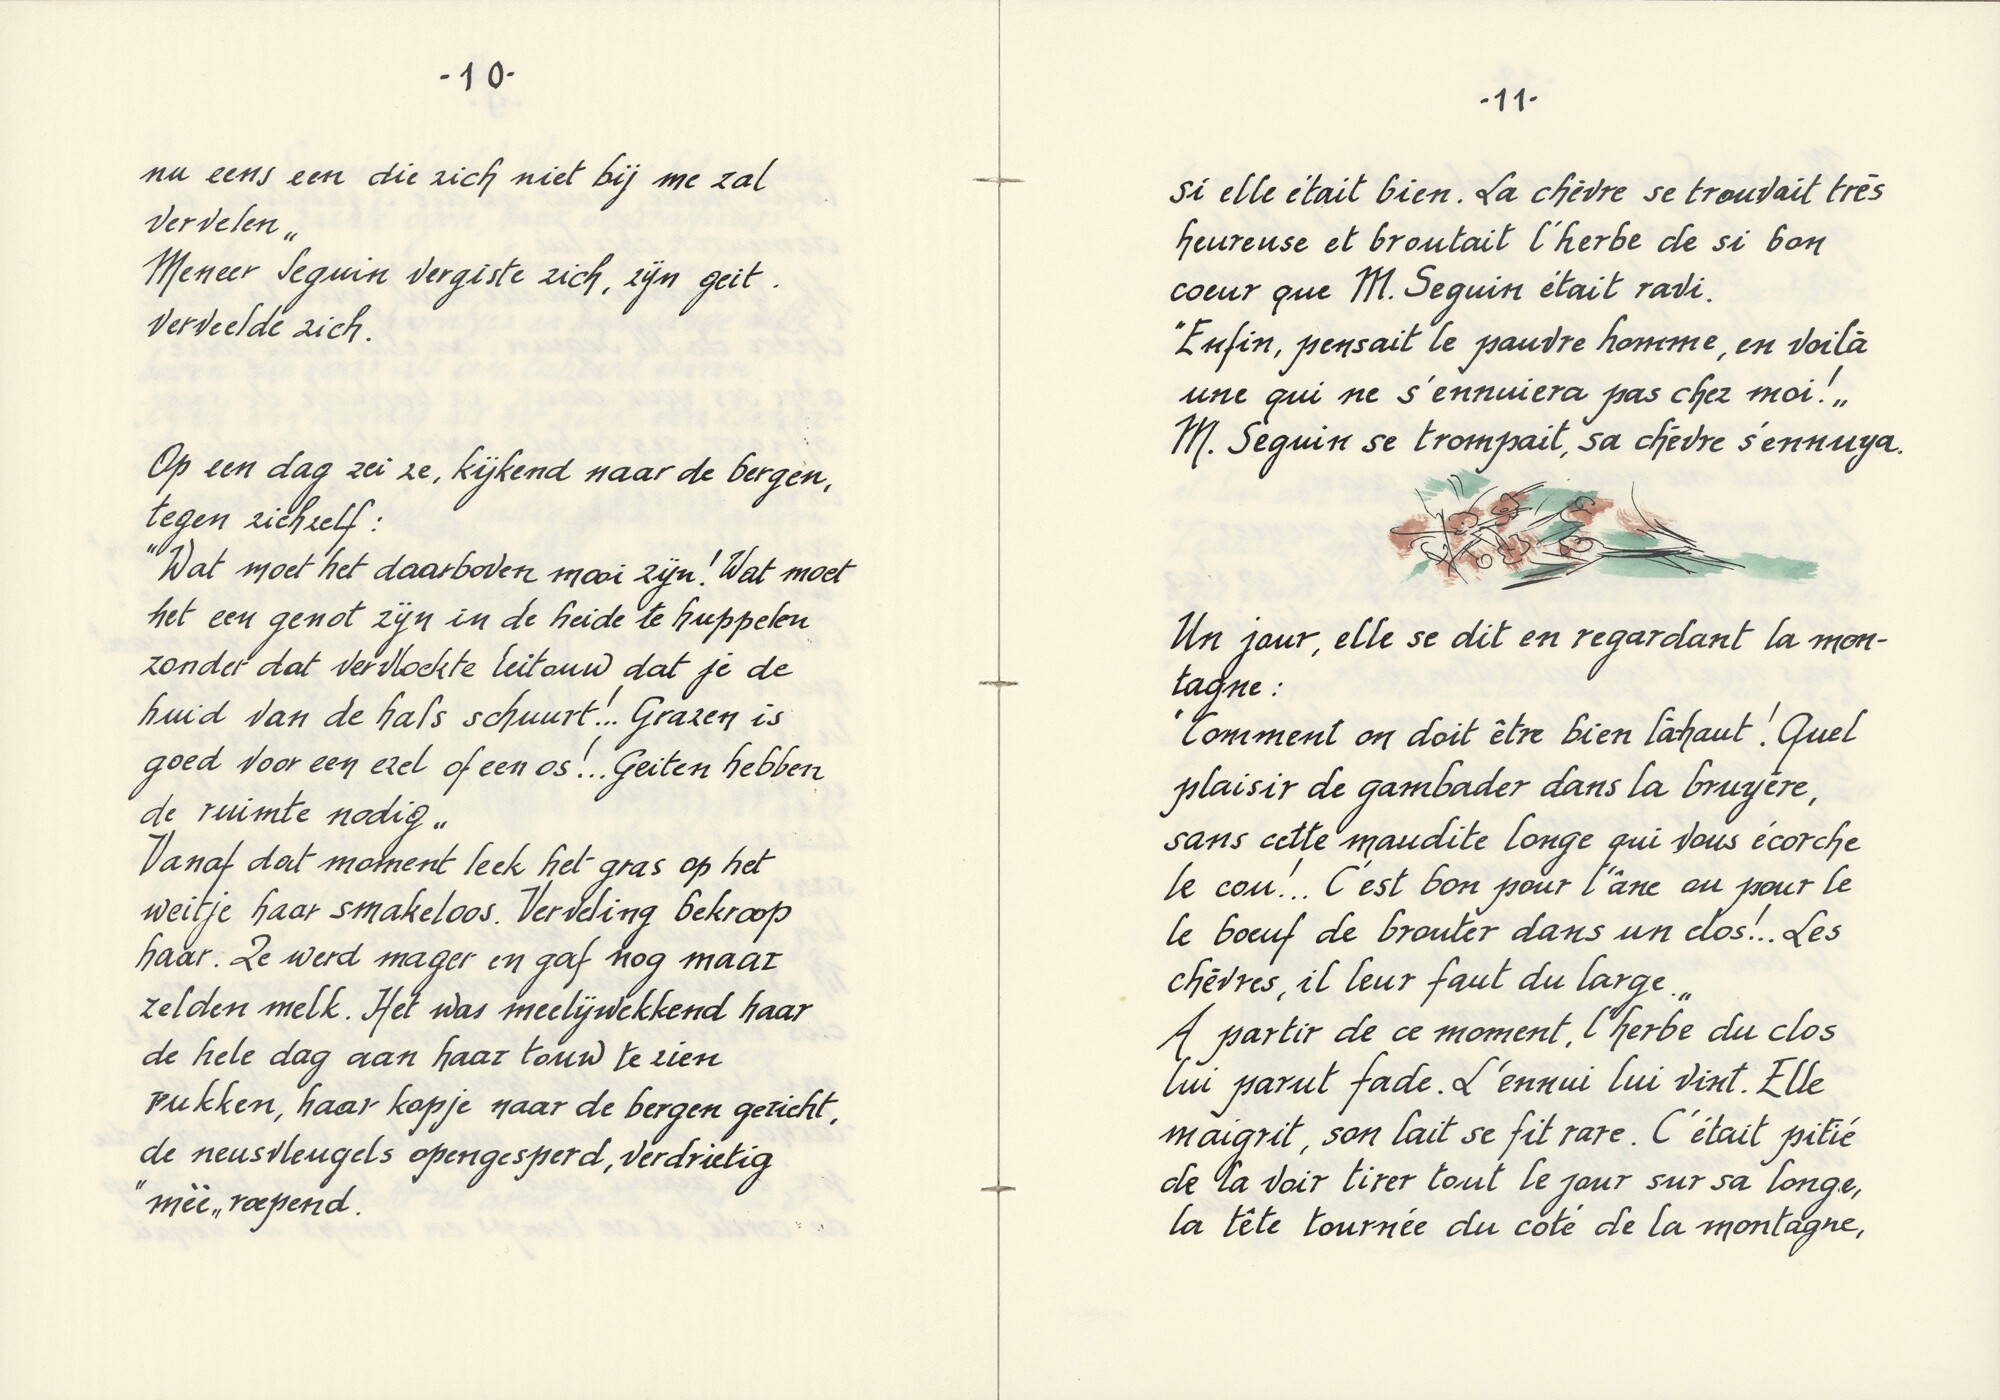 -10-
nu eens een die zich niet bij me zal
vervelen„
Meneer Seguin vergiste zich, zijn geit.
verveelde zich.
Op een dag zei ze, kijkend naar de bergen,
tegen zichzelf:
"Wat moet het daarboven mooi zijn! Wat moet
het een genot zijn in de heide te huppelen
zonder dat vervloekte leitouw dat je de
huid van de hals schuurt!... Grazen is
goed voor een ezel of een os!... Geiten hebben
de ruimte nodig„
Vanaf dat moment leek het gras op het
weitje haar smakeloos. Verveling bekroop
haar. Ze werd mager en gaf nog maar
zelden melk. Het was meelijwekkend haar
de hele dag aan haar touw te zien
rukken, haar kopje naar de bergen gericht,
de neusvleugels opengesperd, verdrietig
"mëë„ roepend.
-11-
si elle était bien. La chèvre se trouvait très
heureuse et broutait l'herbe de si bon
coeur que M. Seguin était ravi.
"Enfin, pensait le pauvre homme, en voilà
une qui ne s'ennuiera pas chez moi!„
M. Seguin se trompait, sa chèvre s'ennuya.
Un jour, elle se dit en regardant la mon-
tagne:
"Comment on doit être bien là-haut! Quel
plaisir de gambader dans la bruyère,
sans cette maudite longe qui vous écorche
le cou!... C'est bon pour l'âne ou pour le
le boeuf de brouter dans un clos!... Les
chèvres, il leur faut du large.„
A partir de ce moment, l'herbe du clos
lui parut fade. L'ennui lui vint. Elle
maigrit, son lait se fit rare. C'était pitié
de la voir tirer tout le jour sur sa longe,
la tête tournée du côté de la montagne,